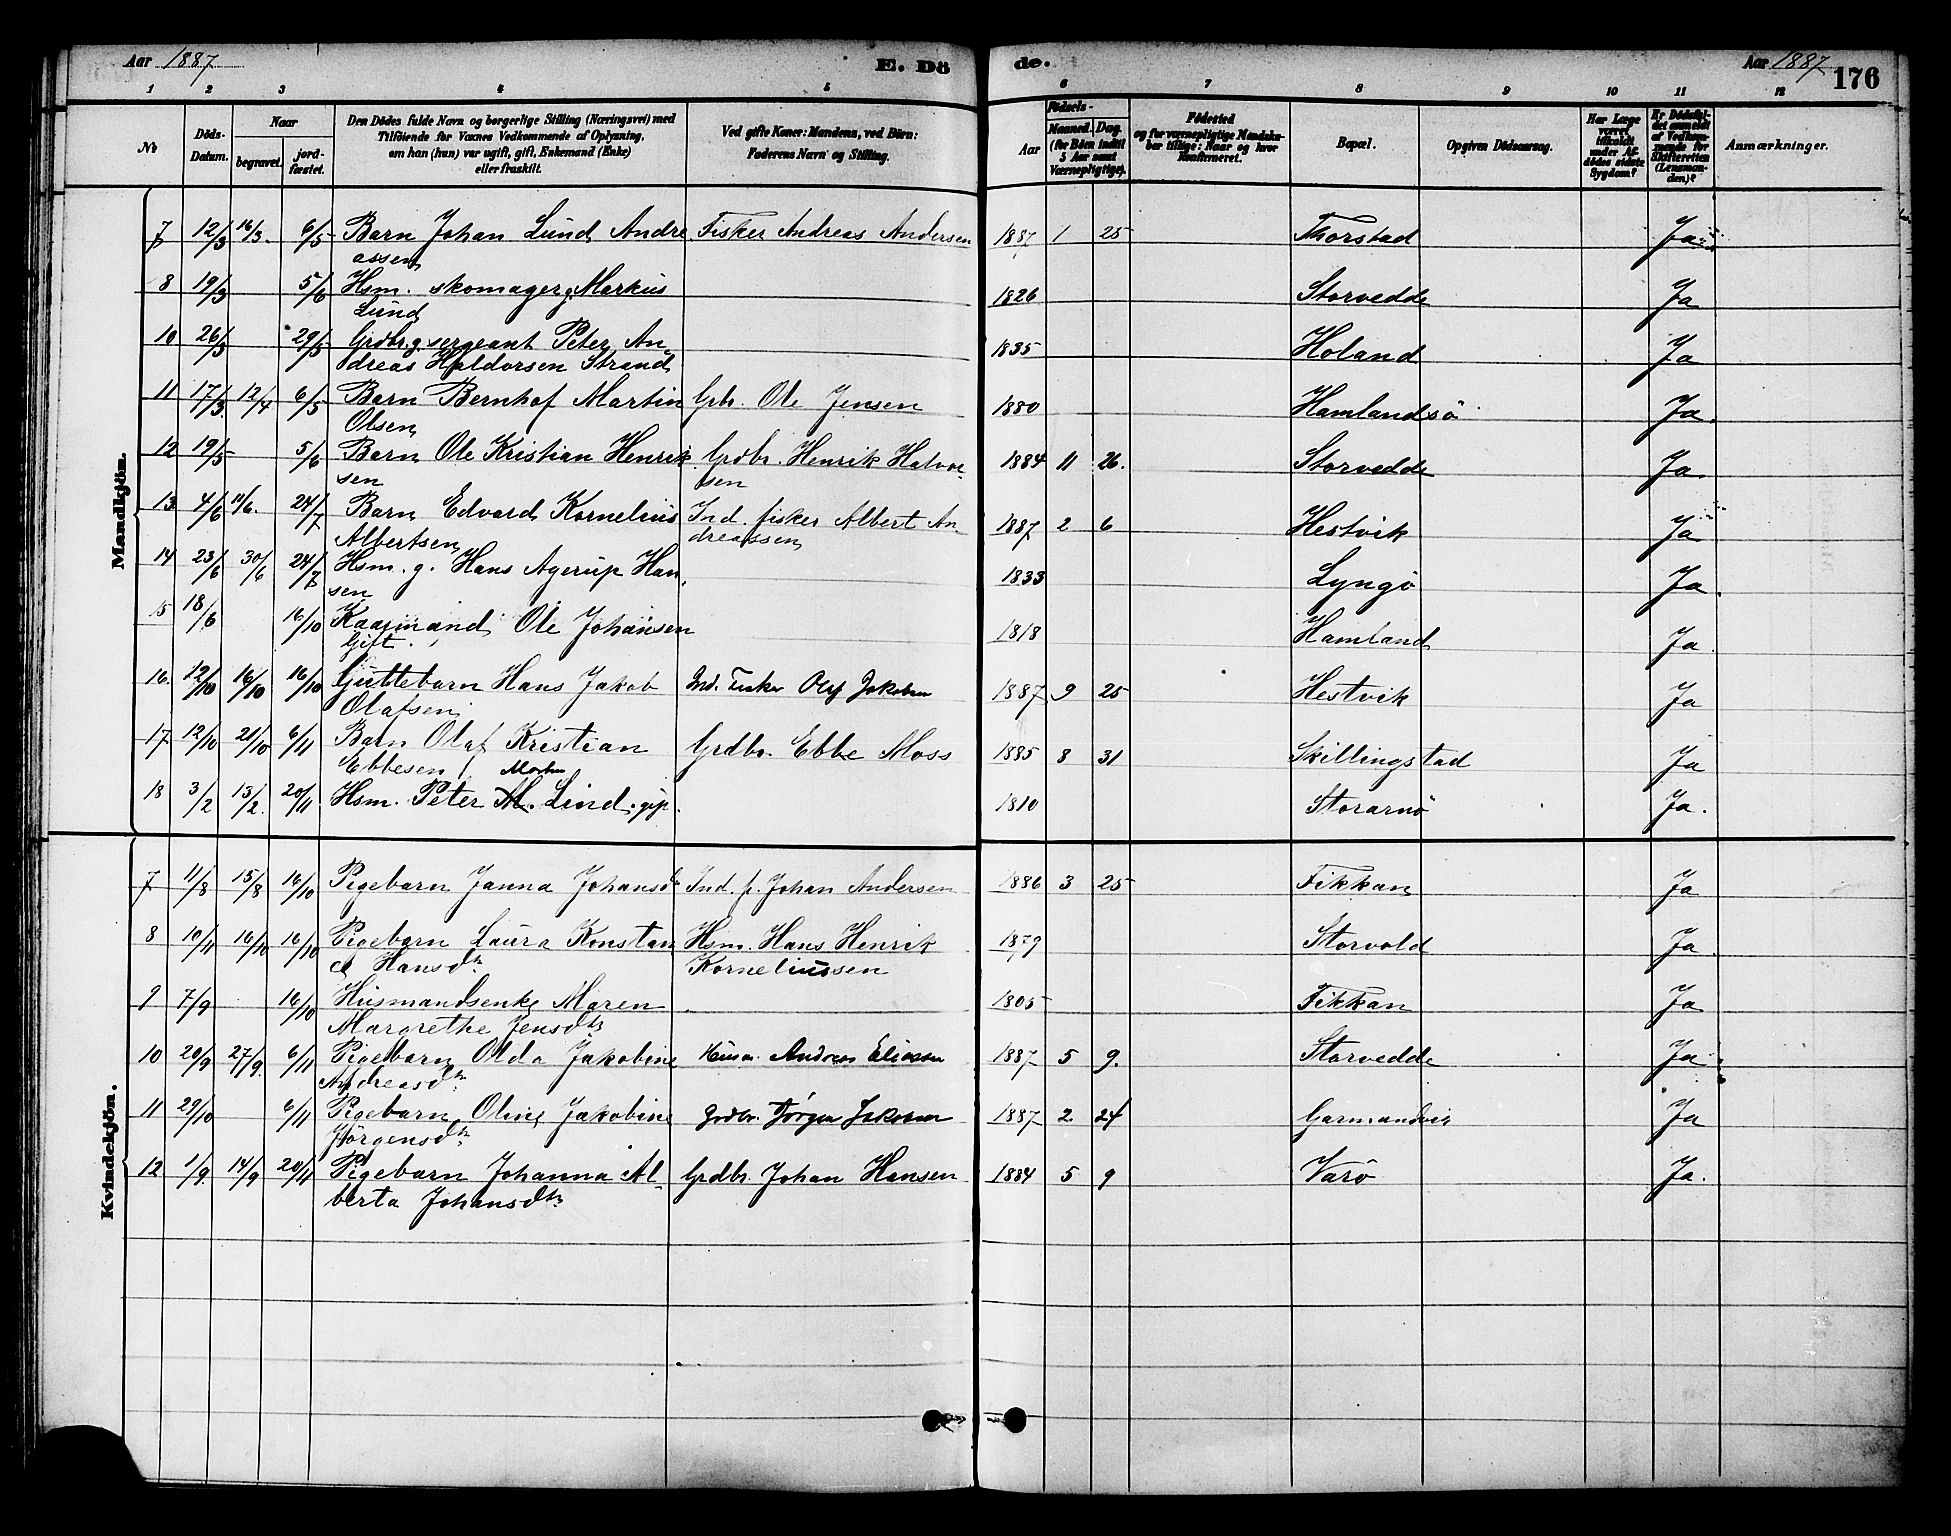 Aar 1887 E. Dö de. Aar 1887 176
1 2 3 4 5 6 7 8 9 10 11 12
№ Döds-Datum. Naar begravet. jordfæstet. Den Dödes fulde Navn og borgerlige Stilling (Næringsvei) med Tilföiende for Voxnes Vedkommende af Oplysning, om han (hun) var ugift, gift, Enkemand (Enke) eller fraskilt. Ved gifte Koner: Mandens, ved Börn: Faderens Navn og Stilling. Födsels- Aar Maaned. Dag. (for Börn indtil 5 Aar samt Værnepligtige). Födested og for værnepligtige Mandskaber tillige: Naar og hvor konfirmeret. Bopæl. Opgiven Dödsaarsag. Har Læge været tilkaldt under Afdödes sidste Sygdom? Er Dödsfaldet anmeldt af Vedkommende for Skifteretten (Lensmanden)? Anmærkninger.
Mandkjön.
7 12/3 16/3. 6/5 Barn Johan Lund Andre Fisker Andreas Andersen 1887 1 25 Thorstad Ja
assen
8 19/3 5/6 Hsm. skomager g. Markus 1826 Storvedde Ja
Lund
10 26/3 29/5 Grdbr. g. sergeant Peter An 1835 Holand Ja
dreas Haldorsen Strand
11 17/3. 12/4 6/5 Barn Bernhof Martin Grb. Ole Jensen 1880 Hamlandsö Ja.
Olsen
12 19/5 5/6 Barn Ole Kristian Henrik Grdbr. Henrik Halvor 1884 11 26. Storvedde Ja
sen sen
13 4/6 11/6. 24/7 Barn Edvard Kornelius Ind. fisker Albert An 1887 2 6 Hestvik Ja
Albertsen dreassen
14 23/6 30/6 24/7 Hsm. g. Hans Agerup Han 1833 Lyngö Ja.
sen
15 18/6 16/10 Kaarmand Ole Johansen 1818 Hamland Ja.
Gift.
16. 12/10 16/10 16/10 Guttebarn Hans Jakob Ind. Fisker Olaf Jakobsen 1887 9 25 Hestvik Ja
Olafsen
17 12/10 21/10 6/11 Barn Olaf Kristian Grdbr. Ebbe Moss 1885 8 31 Skillingstad Ja
Ebbesen
18 3/2 13/2. 20/11 Hsm. Peter M. Lind. gift. 1810 Storarnö Ja.
Kvindekjön.
7 11/8 15/8 16/10 Pigebarn Janna Johansdtr Ind. f. Johan Andersen 1886 3 25 Fikkan Ja
8 10/11 16/10 16/10 Pigebarn Laura Konstan Hsm. Hans Henrik 1879 Storvold Ja.
ce Hansdtr Korneliussen
9 7/9 16/10 Husmandsenke Maren 1805 Fikkan Ja
Margrethe Jensdtr
10 20/9 27/9. 6/11 Pigebarn Olda Jakobine Husm. Andreas Eliassen 1887 5 9. Storvedde Ja
Andreasdtr
11 29/10 6/11 Pigebarn Oline Jakobine Grdbr. Jørgen Jakobsen 1887 2 24 Garmandvik Ja
Jørgensdtr
12 1/9. 14/9 20/11 Pigebarn Johanna Al- Grdbr. Johan Hansen 1884 5 9 Varö Ja.
berta Johansdtr